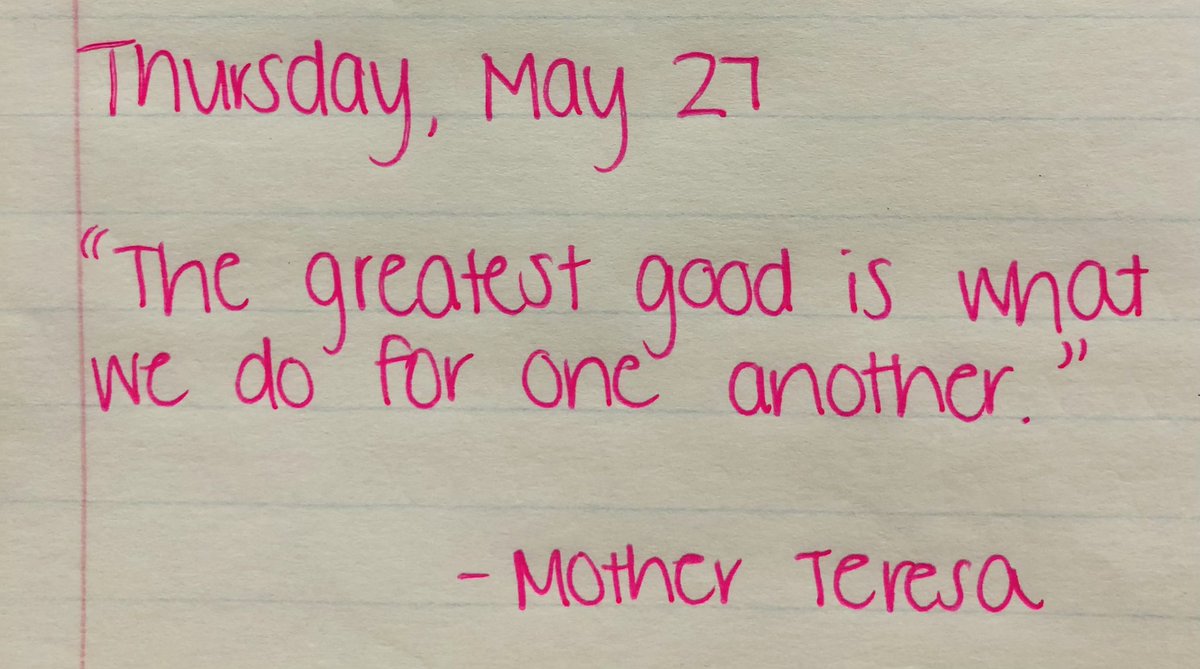 Thursday, May 27
“The greatest good is what
we do for one another.”
- Mother Teresa